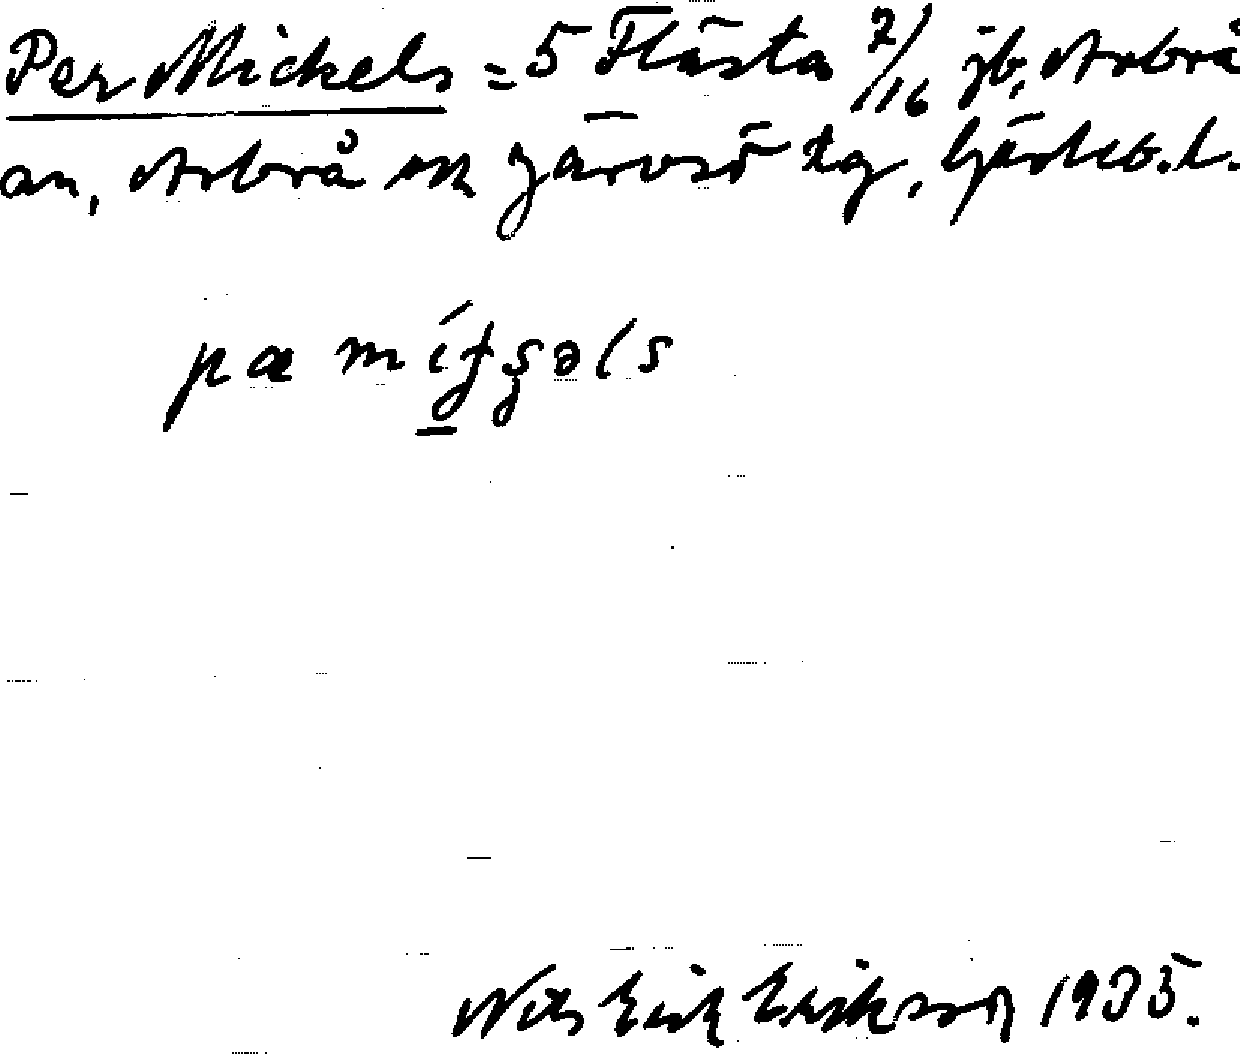 Per Mickels = 5 Flästa 2/16 jb, Arbrå
sn, Arbrå o Järvsö tg, Gävleb. l.
Nils Erik Eriksson 1935.